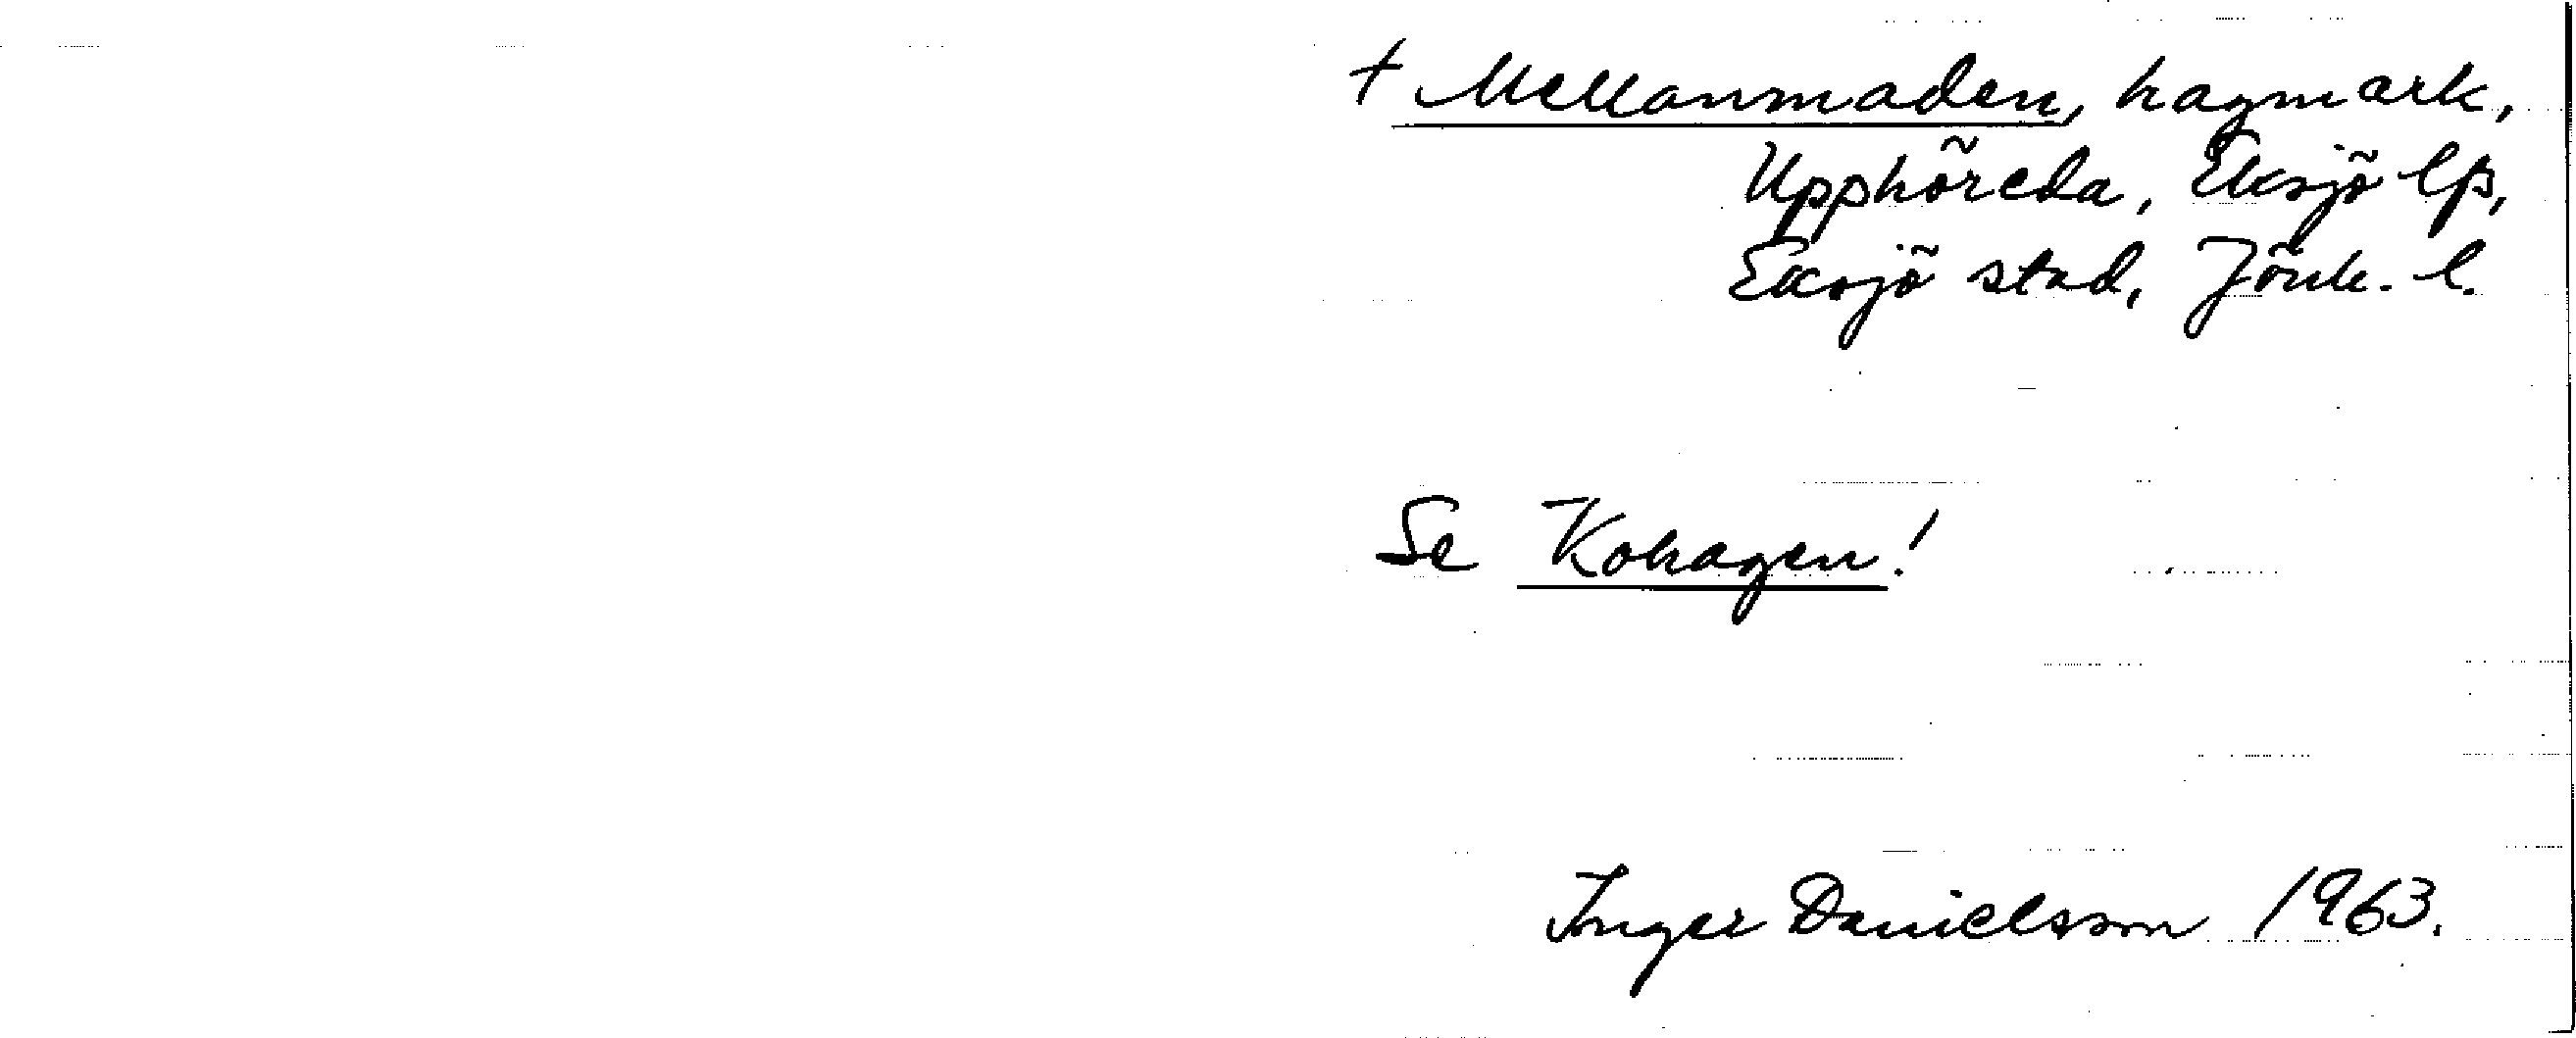 † Mellanmaden, hagmark,
Upphöreda, Eksjö lfs,
Eksjö stad, Jönk. l.
Se Kohagen!
Inger Danielsson 1963.